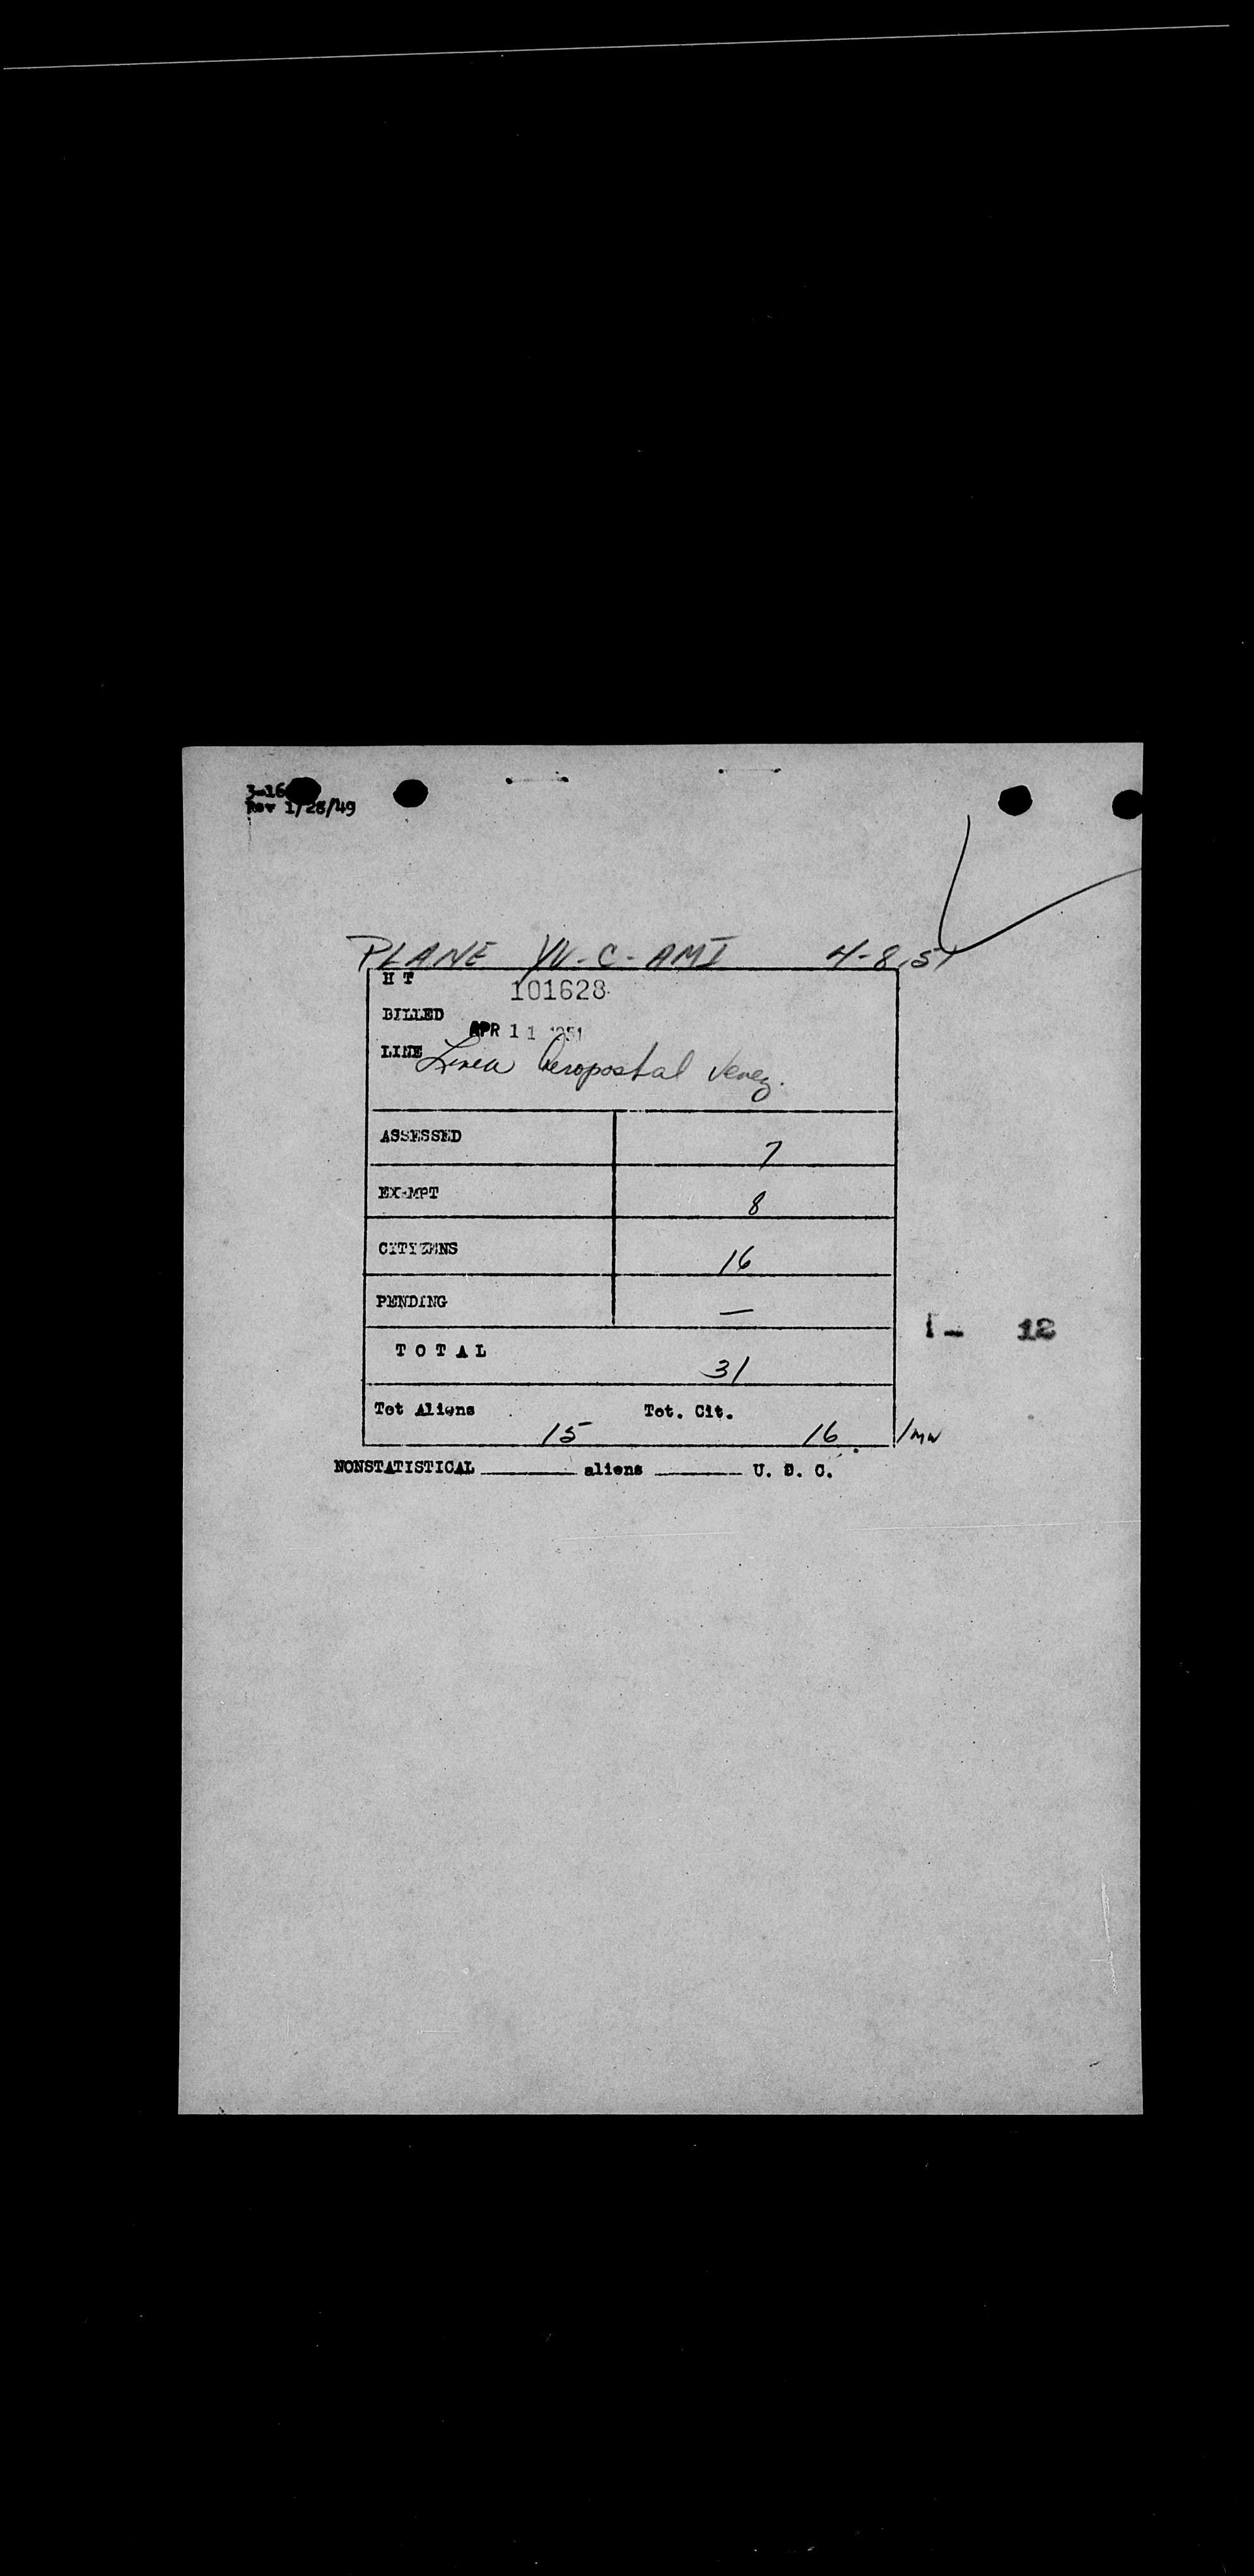 3-16
Rev 1/28/49
PLANE YV-C-AMI 4-8-51
H T 101628
BILLED APR 11 1951
LINE Linea Aeropostal Venez.
ASSESSED 7
EXEMPT 8
CITIZENS 16
PENDING —
1- 12
TOTAL 31
Tot Aliens 15 Tot. Cit. 16 /mw
NONSTATISTICAL ______ aliens ______ U. S. C.